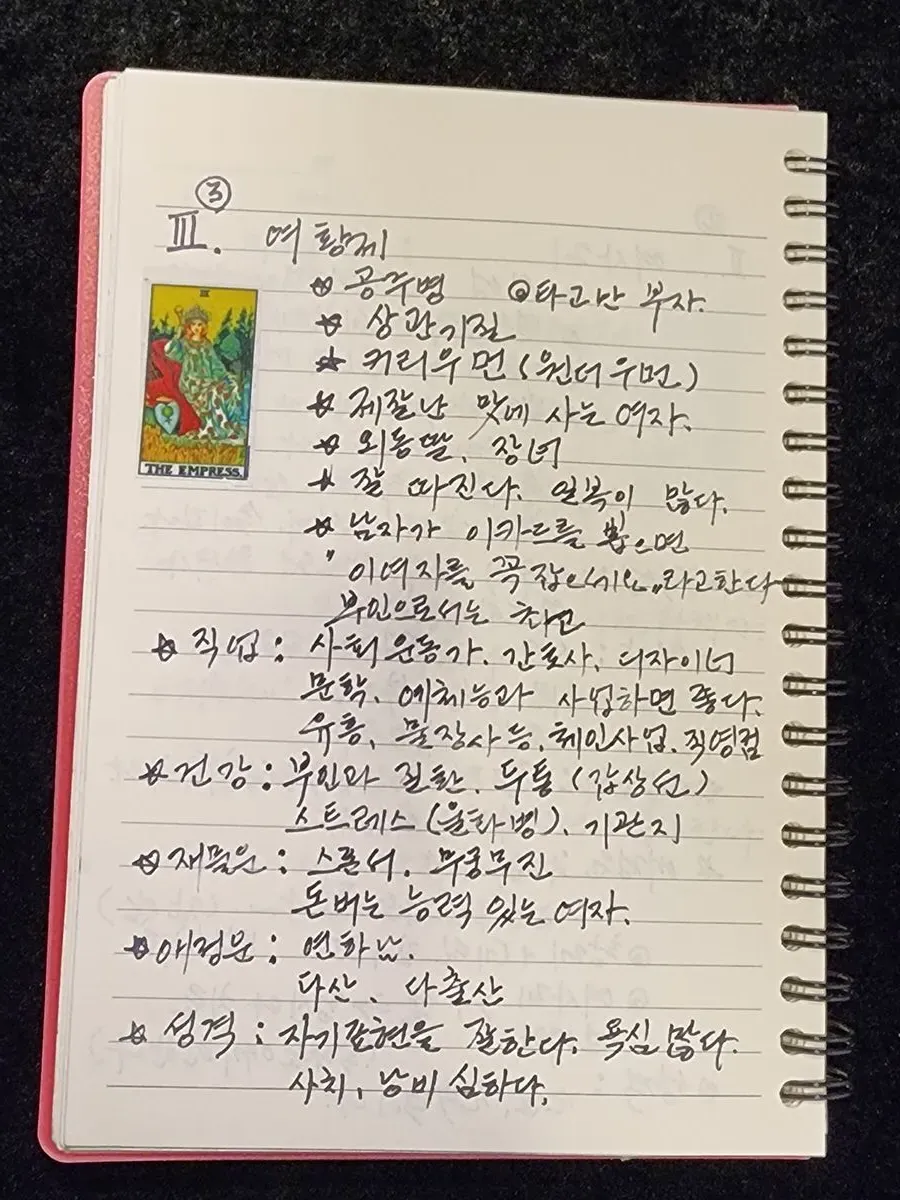 ③
Ⅲ. 여황제
☆ 공주병 ◎타고난 부자.
☆ 상관기질
☆ 커리우먼(원더우먼)
☆ 제잘난 맛에 사는 여자.
☆ 외동딸, 장녀
☆ 잘 따진다. 일복이 많다.
☆ 남자가 이카드를 뽑으면
"이여자를 꼭 잡으세요"라고한다
부인으로서는 최고
☆ 직업: 사회운동가, 간호사, 디자이너
문학, 예체능과 사업하면 좋다.
유흥, 물장사 등, 체인사업, 직영점
☆ 건강: 부인과 질환, 두통 (갑상선)
스트레스(울화병), 기관지
☆ 재물운: 스폰서, 무궁무진
돈버는 능력 있는 여자.
☆ 애정운: 연하남.
다산, 다출산
☆ 성격: 자기표현을 잘한다. 욕심 많다.
사치, 낭비 심하다.
III
THE EMPRESS.